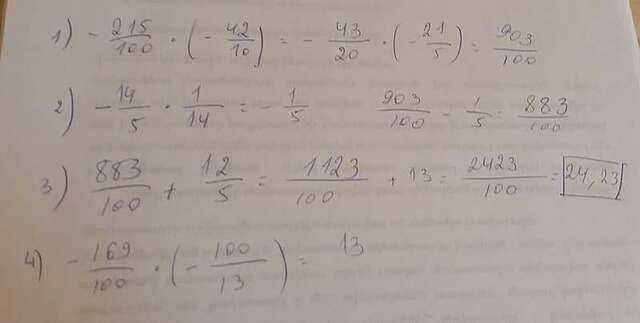 1) - 215/100 · (- 42/10) = - 43/20 · (- 21/5) = 903/100
2) - 14/5 · 1/14 = - 1/5 903/100 - 1/5 = 883/100
3) 883/100 + 12/5 = 1123/100 + 13 = 2423/100 = 24,23
4) - 169/100 · (- 100/13) = 13